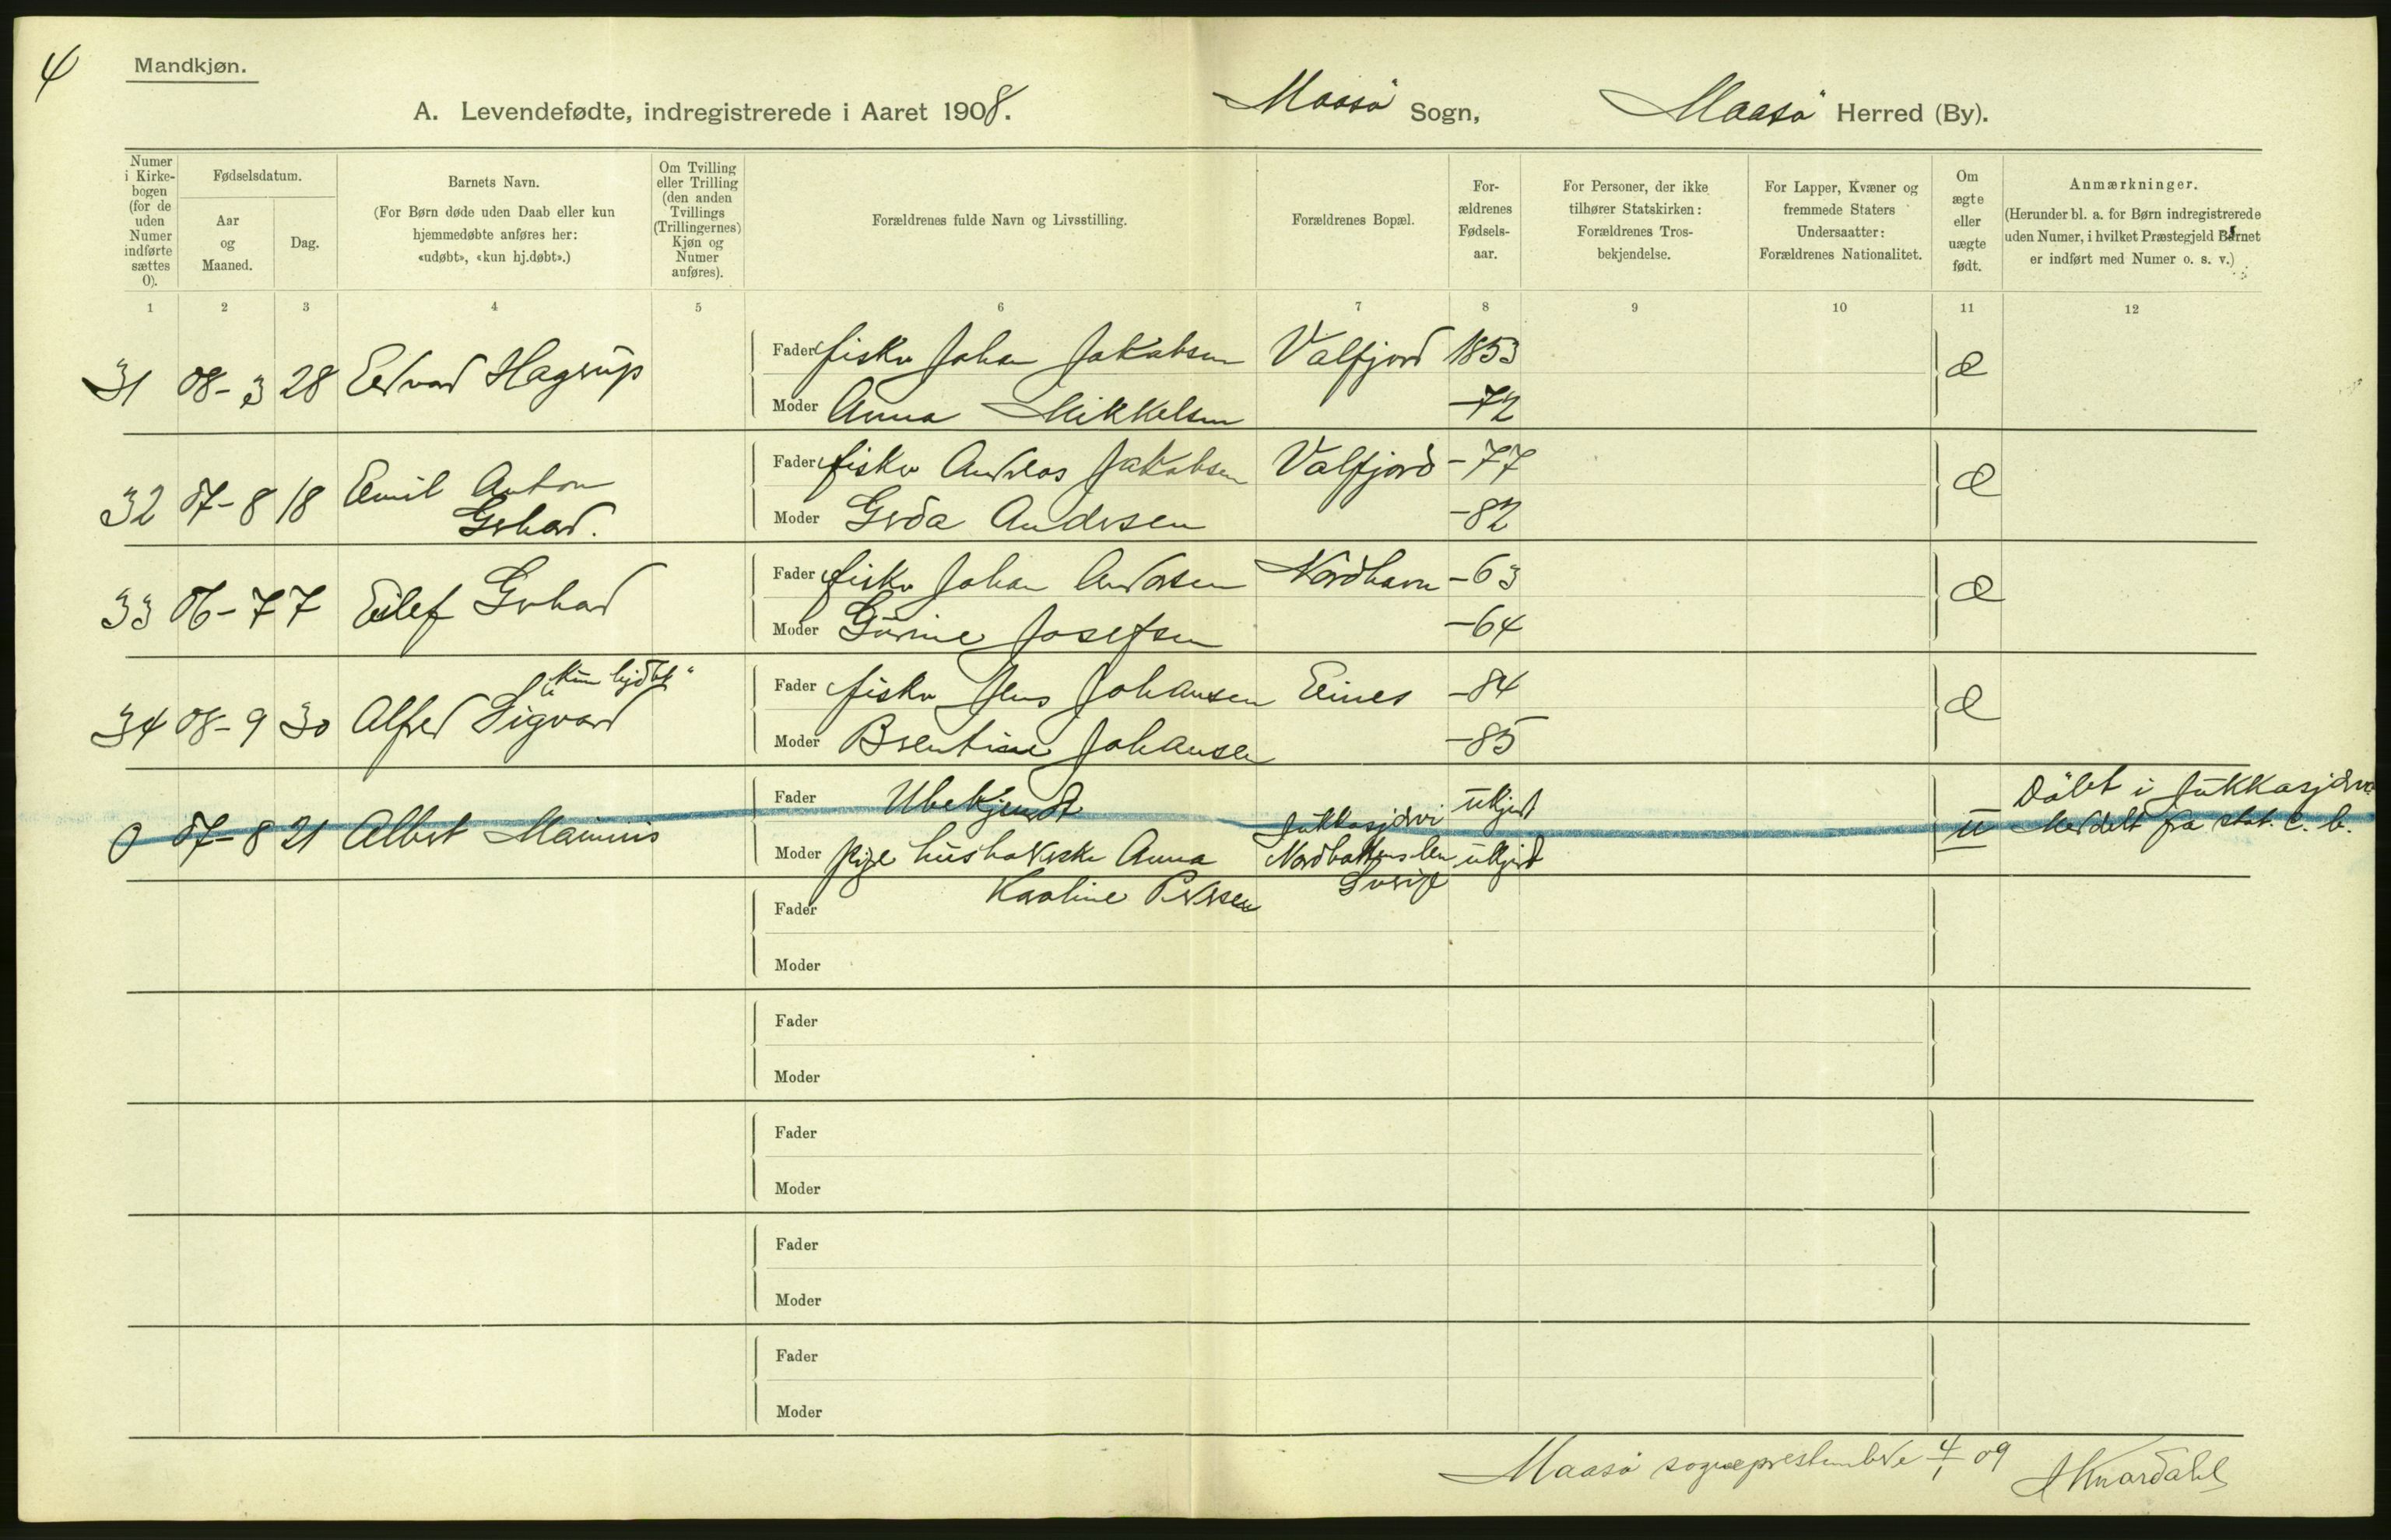 4
Mandkjøn.
A. Levendefødte, indregistrerede i Aaret 1908. Maasö Sogn, Maasö Herred (By).
Numer i Kirkebogen (for de uden Numer indførte sættes 0).
Fødselsdatum.
Aar og Maaned.
Dag.
Barnets Navn.
(For Børn døde uden Daab eller kun
hjemmedøbte anføres her:
«udøbt», «kun hj.døbt».)
Om Tvilling
eller Trilling
(den anden
Tvillings
(Trillingernes)
Kjøn og
Numer
anføres).
Forældrenes fulde Navn og Livsstilling.
Forældrenes Bopæl.
For-
ældrenes
Fødsels-
aar.
For Personer, der ikke
tilhører Statskirken:
Forældrenes Tros-
bekjendelse.
For Lapper, Kvæner og
fremmede Staters
Undersaatter:
Forældrenes Nationalitet.
Om
ægte
eller
uægte
født.
Anmærkninger.
(Herunder bl. a. for Børn indregistrerede
uden Numer, i hvilket Præstegjeld Barnet
er indført med Numer o. s. v.)
1 2 3 4 5 6 7 8 9 10 11 12
31 08-3 28 Edvard Hagrup Fader fisker Johan Jakobsen Valfjord 1853 æ
Moder Anna Mikkelsen -72
32 07-8 18 Emil Anton Gerhard. Fader fisker Andreas Jakobsen Valfjord -77 æ
Moder Gerda Andersen -82
33 06-7 7 Eilef Gerhard Fader fisker Johan Andersen Nordhavn -63 æ
Moder Gurine Josefsen -64
34 08-9 30 Alfred Sigvard "kun hjdbt" Fader fisker Jens Johansen Eines -84 æ
Moder Brentine Johansen -85
0 07-8 21 Albert Fader Ubekjendt Jukkasjervi ukjent u Döbt i Jukkasjervi
Moder pige husholderske Anna Nordbottens len ukjent Meddelt fra stat. c. b.
Karoline Pedersen Sverige
Fader
Moder
Fader
Moder
Fader
Moder
Fader
Moder
Fader
Moder
Maasö sogneprestembede 4/1 09 Knardahl